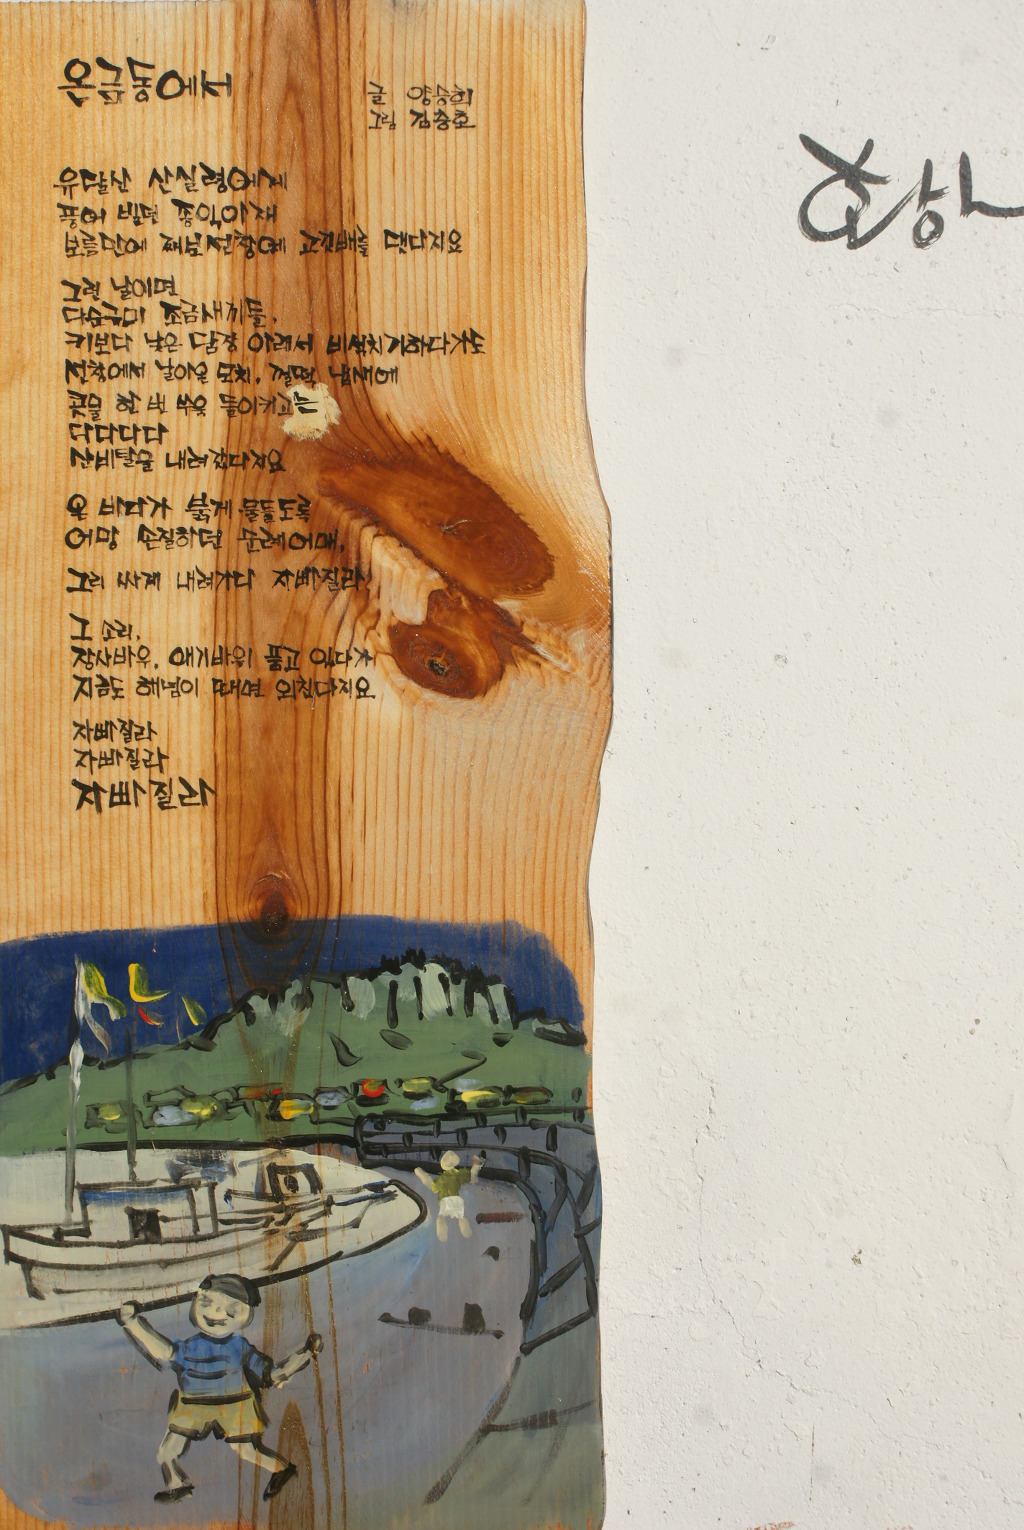 온금동에서
글 양승희
그림 김충호
유달산 산신령에게
풍어 빌던 종익아재
보름만에 째보선창에 고깃배를 댔다지요
그런 날이면
다순구미 조금새끼들,
키보다 낮은 담장 아래서 비석치기하다가도
선창에서 날아온 모치, 껄떡 냄새에
콧물 한 번 쑤욱 들이키고는
다다다다
산비탈을 내려갔다지요
온 바다가 붉게 물들도록
어망 손질하던 순례어매,
그리 싸게 내려가다 자빠질라
그 소리,
장사바우, 애기바위 품고 있다가
지금도 해넘이 때면 외친다지요
자빠질라
자빠질라
자빠질라